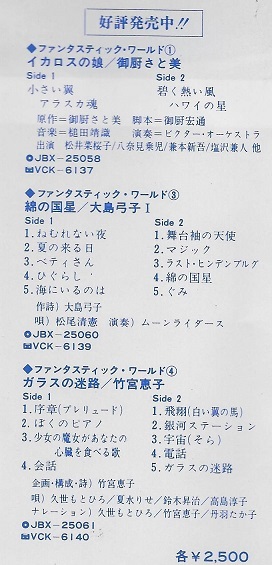 好評発売中!!
◆ファンタスティック・ワールド①
イカロスの娘／御厨さと美
Side 1
小さい翼
アラスカ魂
Side 2
碧く熱い風
ハワイの星
原作＝御厨さと美 脚本＝御厨宏通
音楽＝槌田靖識 演奏＝ビクター・オーケストラ
出演 松井菜桜子/八奈見乗児/兼本新吾/塩沢兼人 他
JBX-25058
VCK-6137
◆ファンタスティック・ワールド③
綿の国星／大島弓子 I
Side 1
1.ねむれない夜
2.夏の来る日
3.ベティさん
4.ひぐらし
5.海にいるのは
Side 2
1.舞台袖の天使
2.マジック
3.ラスト・ヒンデンブルグ
4.綿の国星
5.ぐみ
作詩）大島弓子
唄）松尾清憲 演奏）ムーンライダース
JBX-25060
VCK-6139
◆ファンタスティック・ワールド④
ガラスの迷路／竹宮恵子
Side 1
1.序章(プレリュード)
2.ぼくのピアノ
3.少女の魔女があなたの
心臓を食べる歌
4.会話
Side 2
1.飛翔(白い翼の馬)
2.銀河ステーション
3.宇宙(そら)
4.電話
5.ガラスの迷路
企画・構成・詩）竹宮恵子
唄）久世もとひろ／夏水りせ／鈴木昇治／高島淳子
ナレーション）久世もとひろ／竹宮恵子／丹羽たか子
JBX-25061
VCK-6140
各￥2,500